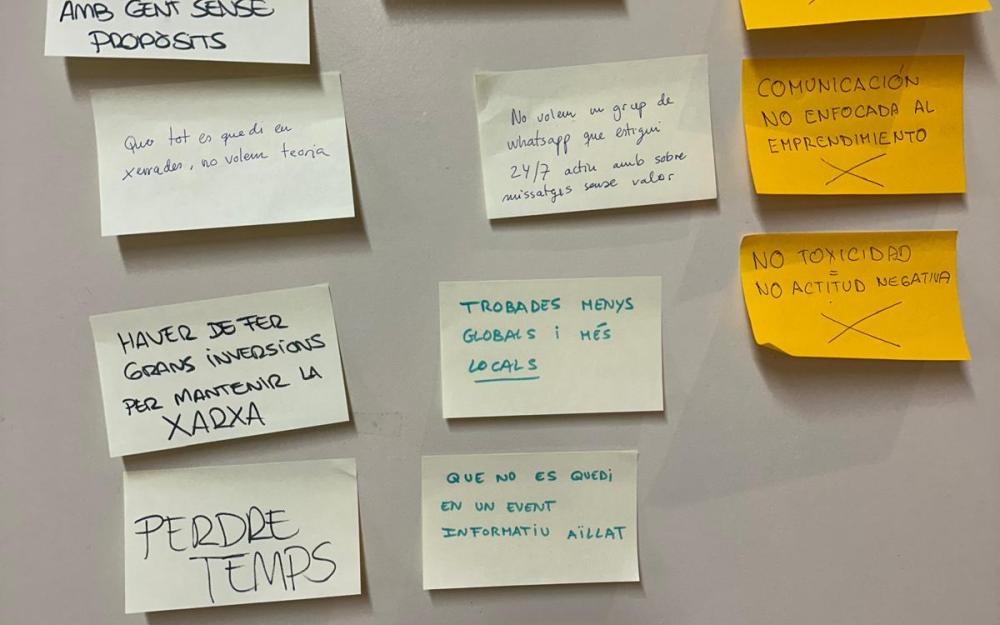 AMB GENT SENSE
PROPÒSITS
Que tot es quedi en
xerrades, no volem teoria
HAVER DE FER
GRANS INVERSIONS
PER MANTENIR LA
XARXA
PERDRE
TEMPS
No volem un grup de
whatsapp que estigui
24/7 actiu amb sobre
missatges sense valor
TROBADES MENYS
GLOBALS I MÉS
LOCALS
QUE NO ES QUEDI
EN UN EVENT
INFORMATIU AÏLLAT
COMUNICACIÓN
NO ENFOCADA AL
EMPRENDIMIENTO
NO TOXICIDAD
=
NO ACTITUD NEGATIVA